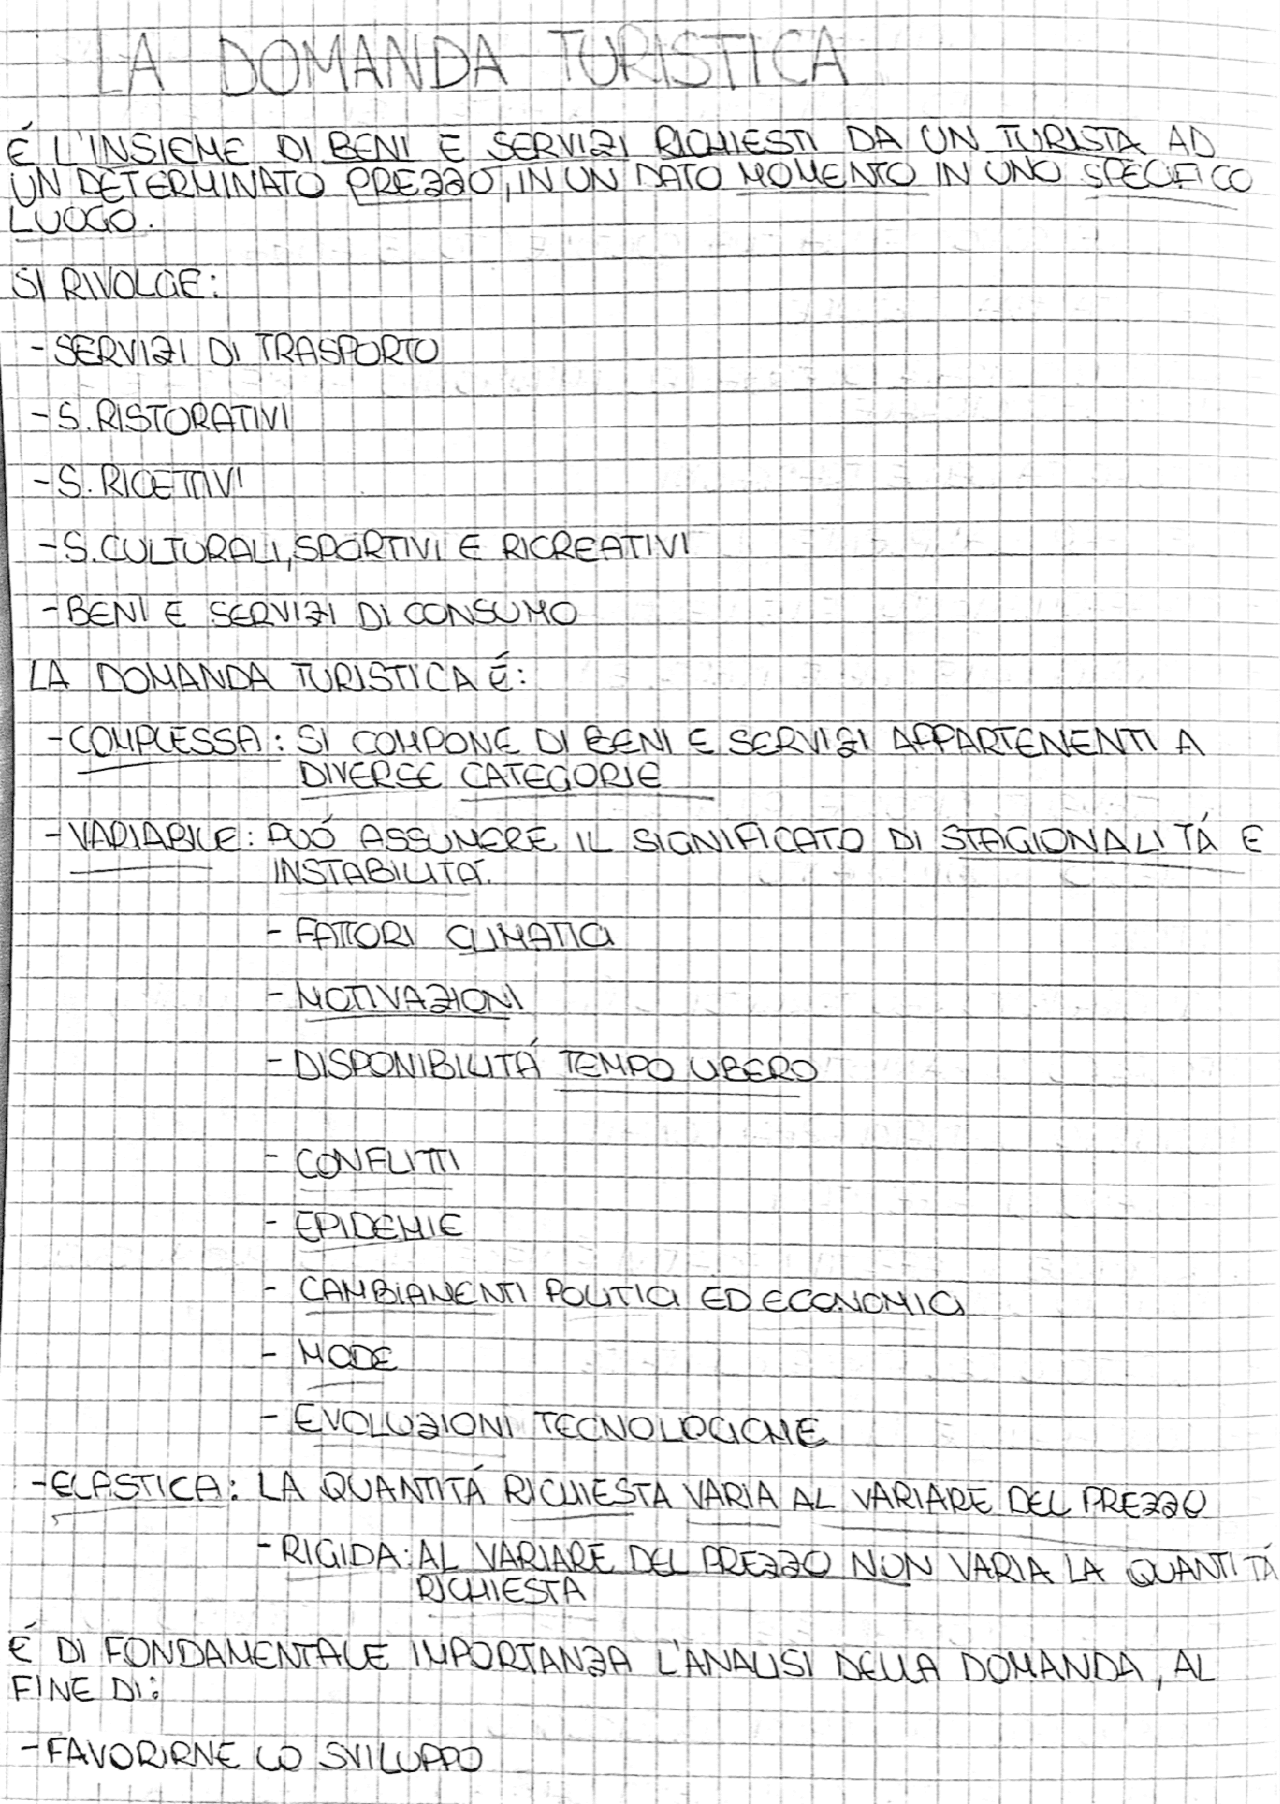 LA DOMANDA TURISTICA
É L'INSIEME DI BENI E SERVIZI RICHIESTI DA UN TURISTA AD
UN DETERMINATO PREZZO, IN UN DATO MOMENTO IN UNO SPECIFICO
LUOGO.
SI RIVOLGE:
- SERVIZI DI TRASPORTO
- S. RISTORATIVI
- S. RICETTIVI
- S. CULTURALI, SPORTIVI E RICREATIVI
- BENI E SERVIZI DI CONSUMO
LA DOMANDA TURISTICA É:
- COMPLESSA: SI COMPONE DI BENI E SERVIZI APPARTENENTI A
DIVERSE CATEGORIE
- VARIABILE: PUÓ ASSUMERE IL SIGNIFICATO DI STAGIONALITÁ E
INSTABILITÁ.
- FATTORI CLIMATICI
- MOTIVAZIONI
- DISPONIBILITÁ TEMPO LIBERO
- CONFLITTI
- EPIDEMIE
- CAMBIAMENTI POLITICI ED ECONOMICI
- MODE
- EVOLUZIONI TECNOLOGICHE
- ELASTICA: LA QUANTITÁ RICHIESTA VARIA AL VARIARE DEL PREZZO
- RIGIDA: AL VARIARE DEL PREZZO NON VARIA LA QUANTITÁ
RICHIESTA
É DI FONDAMENTALE IMPORTANZA L'ANALISI DELLA DOMANDA, AL
FINE DI:
- FAVORIRNE LO SVILUPPO